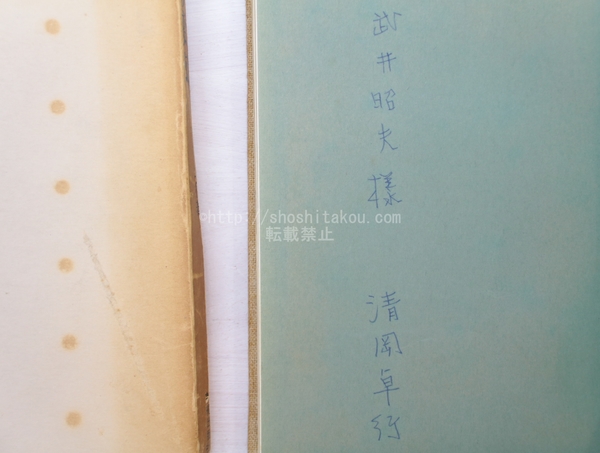 武井昭夫様
清岡卓行
©http://shoshitakou.com
転載禁止